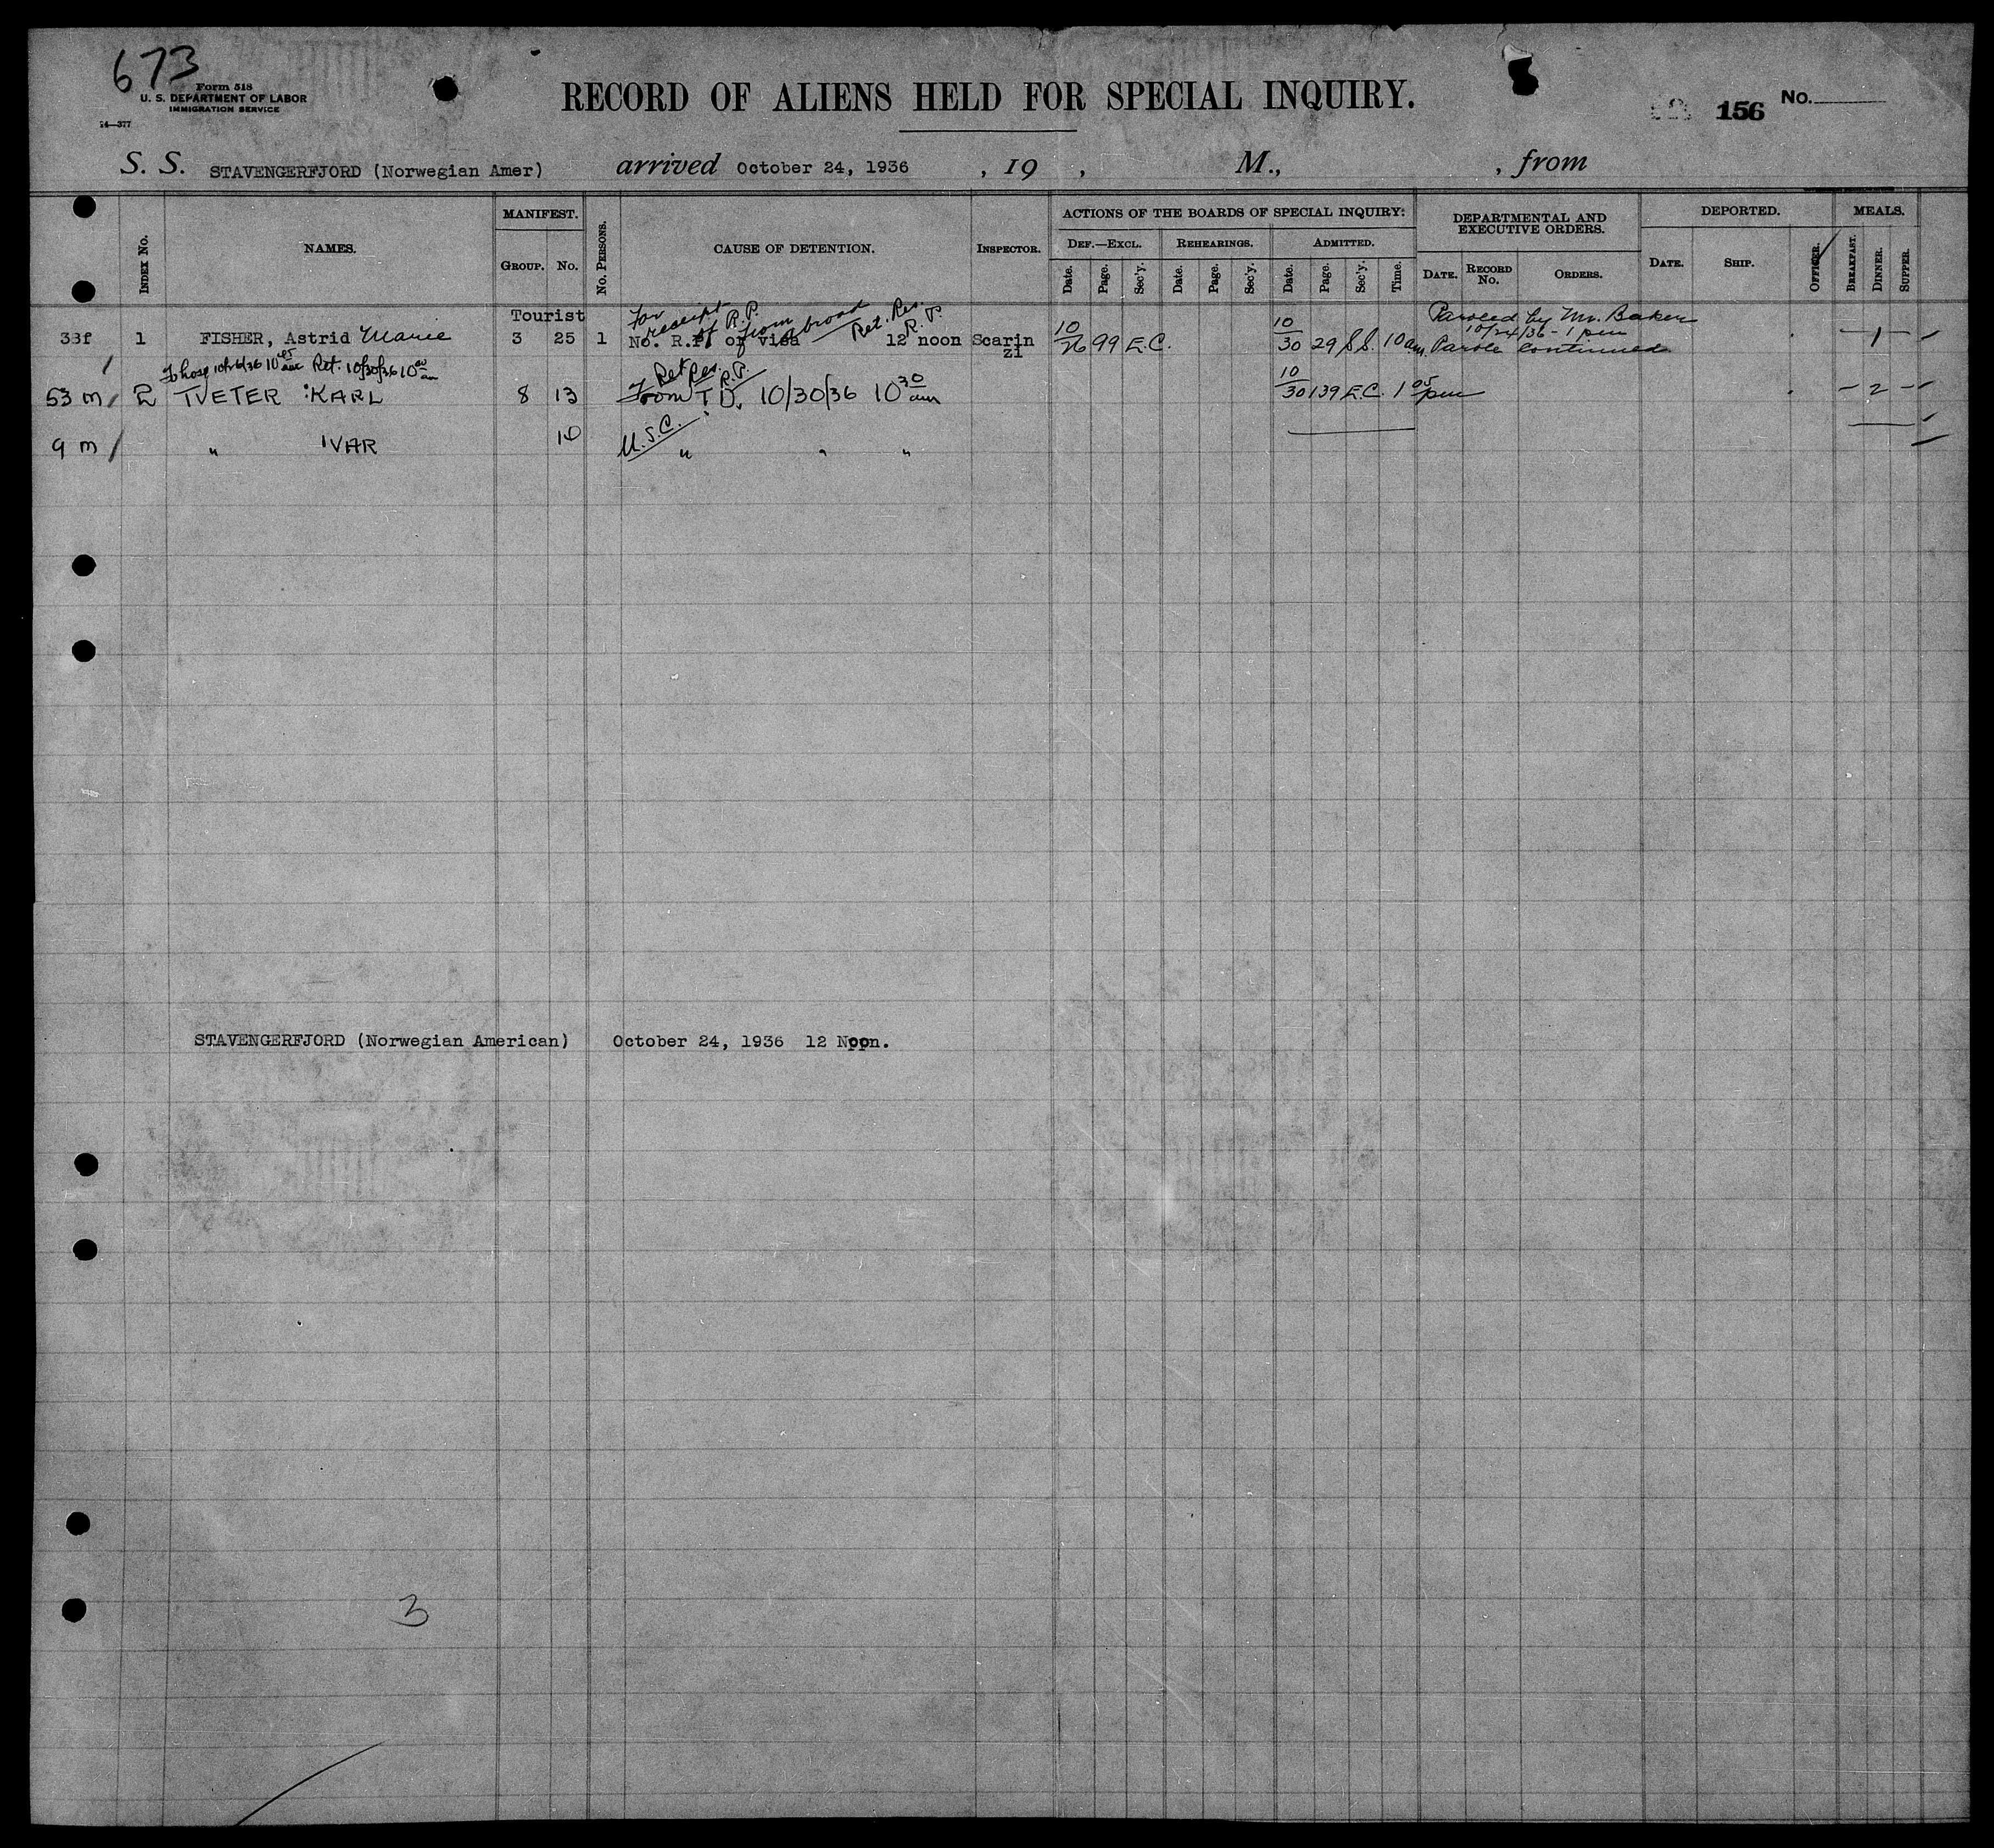 673
Form 518
U. S. DEPARTMENT OF LABOR
IMMIGRATION SERVICE
14—377
RECORD OF ALIENS HELD FOR SPECIAL INQUIRY.
156 No.
S. S. STAVENGERFJORD (Norwegian Amer) arrived October 24, 1936 , 19 , M., , from
INDEX No. NAMES. MANIFEST. GROUP. No. No. PERSONS. CAUSE OF DETENTION. INSPECTOR. ACTIONS OF THE BOARDS OF SPECIAL INQUIRY: DEF.—EXCL. Date. Page. Sec'y. REHEARINGS. Date. Page. Sec'y. ADMITTED. Date. Page. Sec'y. Time. DEPARTMENTAL AND EXECUTIVE ORDERS. DATE. RECORD No. ORDERS. DEPORTED. DATE. SHIP. OFFICER. MEALS. BREAKFAST. DINNER. SUPPER.
Tourist For receipt of R.P. from abroad Ret. Res. R.P. Paroled by Mr. Baker
10/24/36 - 1 pm
33f 1 FISHER, Astrid Marie 3 25 1 No. R.P. or visa 12 noon Scarinzi 10/26 99 E.C. 10/30 29 S.S. 10 am Parole continued 1
To hosp 10/26/36 10 45 am Ret. 10/30/36 10 00 am Ret Res. R.P.
53 m 2 TVETER KARL 8 13 From T.D. 10/30/36 10 30 am 10/30 139 E.C. 1 05 pm - 2 -
U.S.C.
9 m " IVAR 14 " " "
STAVENGERFJORD (Norwegian American) October 24, 1936 12 Noon.
3